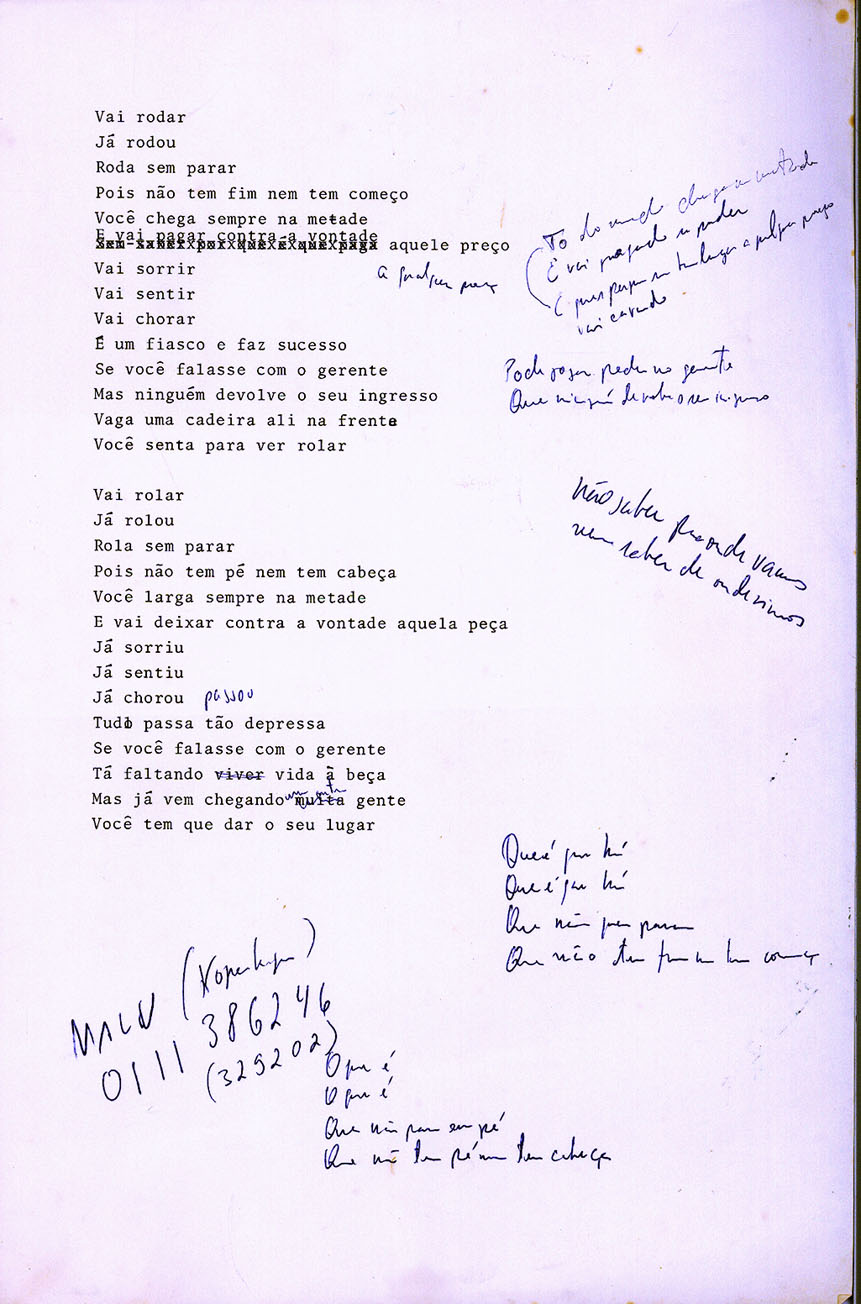 Vai rodar
Já rodou
Roda sem parar
Pois não tem fim nem tem começo
Você chega sempre na metade
E vai pagar contra a vontade
aquele preço
a qualquer preço
Vai sorrir
Vai sentir
Vai chorar
É um fiasco e faz sucesso
Se você falasse com o gerente
Mas ninguém devolve o seu ingresso
Vaga uma cadeira ali na frente
Você senta para ver rolar
Todo mundo chega na metade
E vai
vai cavando
Pode jogar pedra no gerente
Que ninguém devolve o seu ingresso
Não saber pra onde vamos
nem saber de onde vimos
Vai rolar
Já rolou
Rola sem parar
Pois não tem pé nem tem cabeça
Você larga sempre na metade
E vai deixar contra a vontade aquela peça
Já sorriu
Já sentiu
Já chorou passou
Tudo passa tão depressa
Se você falasse com o gerente
Tá faltando viver vida à beça
Mas já vem chegando muita gente
Você tem que dar o seu lugar
Que é que há
Que é que há
Que não quer parar
Que não tem fim nem tem começo
MALU
0111 386246
(329202)
O que é
O que é
Que não para em pé
Que não tem pé nem tem cabeça